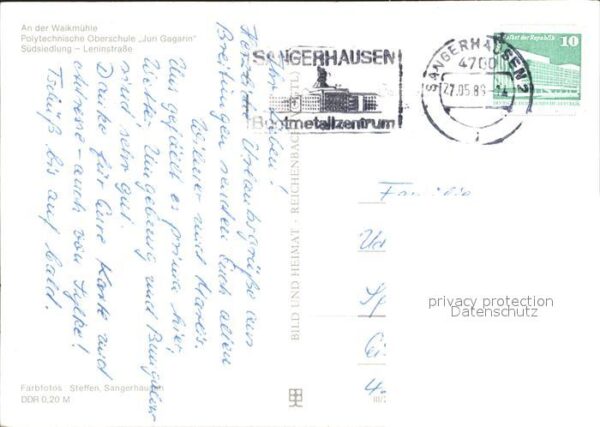 An der Walkmühle
Polytechnische Oberschule „Juri Gagarin"
Südsiedlung — Leninstraße
SANGERHAUSEN
Buntmetallzentrum
SANGERHAUSEN 2
4700
27.05.8
Palast der Republik
10
Ihr Lieben!
Herzliche Urlaubsgrüße aus
Breitungen senden Euch allen
Werner und Klaus.
Uns gefällt es prima hier.
Wetter, Umgebung und Bungalow
sind sehr gut.
Danke für Eure Karte und
Adresse - auch von Sylke!
Tschüß bis auf bald.
BILD UND HEIMAT · REICHENBACH
Familie
privacy protection
Datenschutz
Farbfotos: Steffen, Sangerhausen
DDR 0,20 M